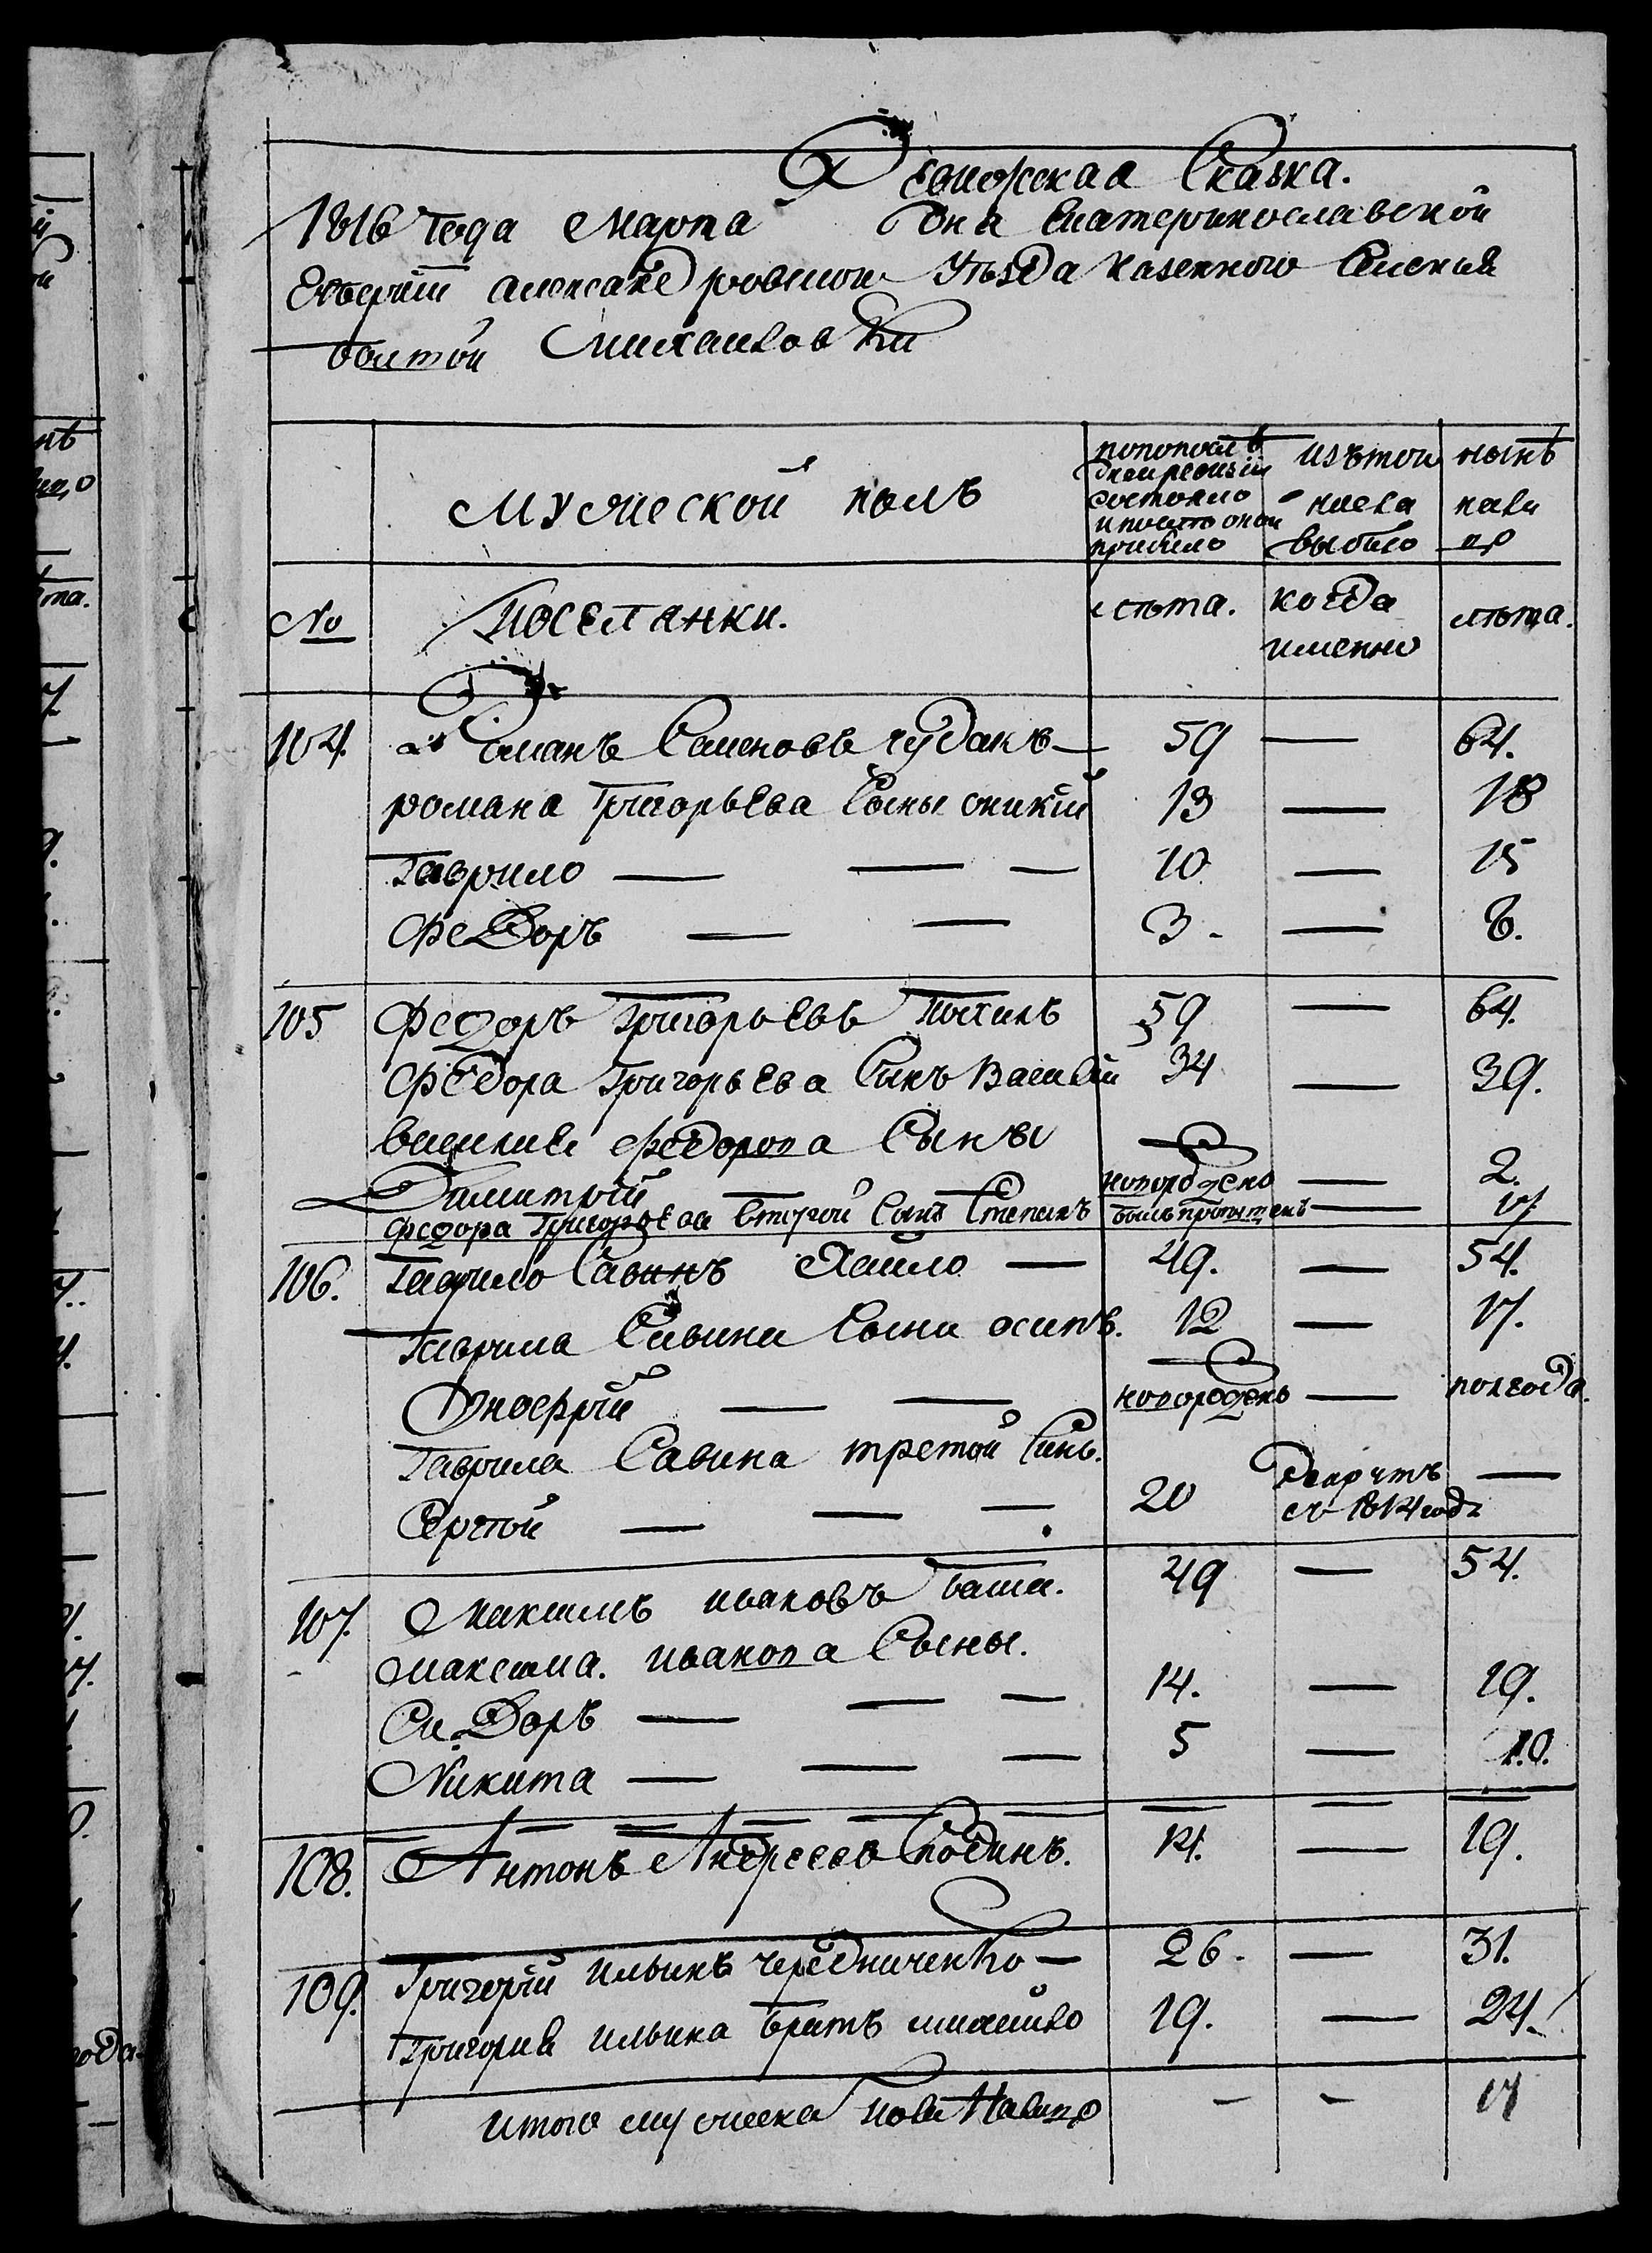 Ревижская Сказка.
1816 Года Марта Дня Екатеринославской
Губернiи Александровскои Уѣзда казенного Селения
Михаиловки
Мужеской полъ
по последней ревизiи состояло и после оной прибыло
изътого числа выбыло
нынѣ на лицо
№ Поселянки. лѣта. когда именно лѣта.
104. Романъ Семеновъ чудакъ — 59 — 64.
романа Григорьева Сыны 13 — 18
Гаврило — — — 10 — 15
Федоръ — — 3 — 8.
105 Федоръ Григорьевъ 59 — 64.
Федора Григорьева Синъ Василiй 34 — 39.
василия федорова Сынъ
Димитрiй новорожденъ — 2.
федора Григорьева второй Сынъ Степанъ былъ пропущенъ — 17
106. Гаврило Савинъ Хаило — 49. — 54.
Гаврила Савина Сыни осипъ. 12 — 17.
Онофрiй — — новорожденъ — полгода.
Гаврила Савина третой Синъ.
Сергей — — — 20 рекрутъ въ 1814 годѣ —
107. Максимъ ивановъ 49 — 54.
максима. иванова Сыны.
Сидоръ — — — 14. — 19.
Никита — — — 5 — 10.
108. Антонъ Андреевъ 14. — 19.
109. Григорiй ильинъ чередниченко — 26. — 31.
Григория ильина братъ михаило 19. — 24.
итого мужеска пола Налицо — - 17